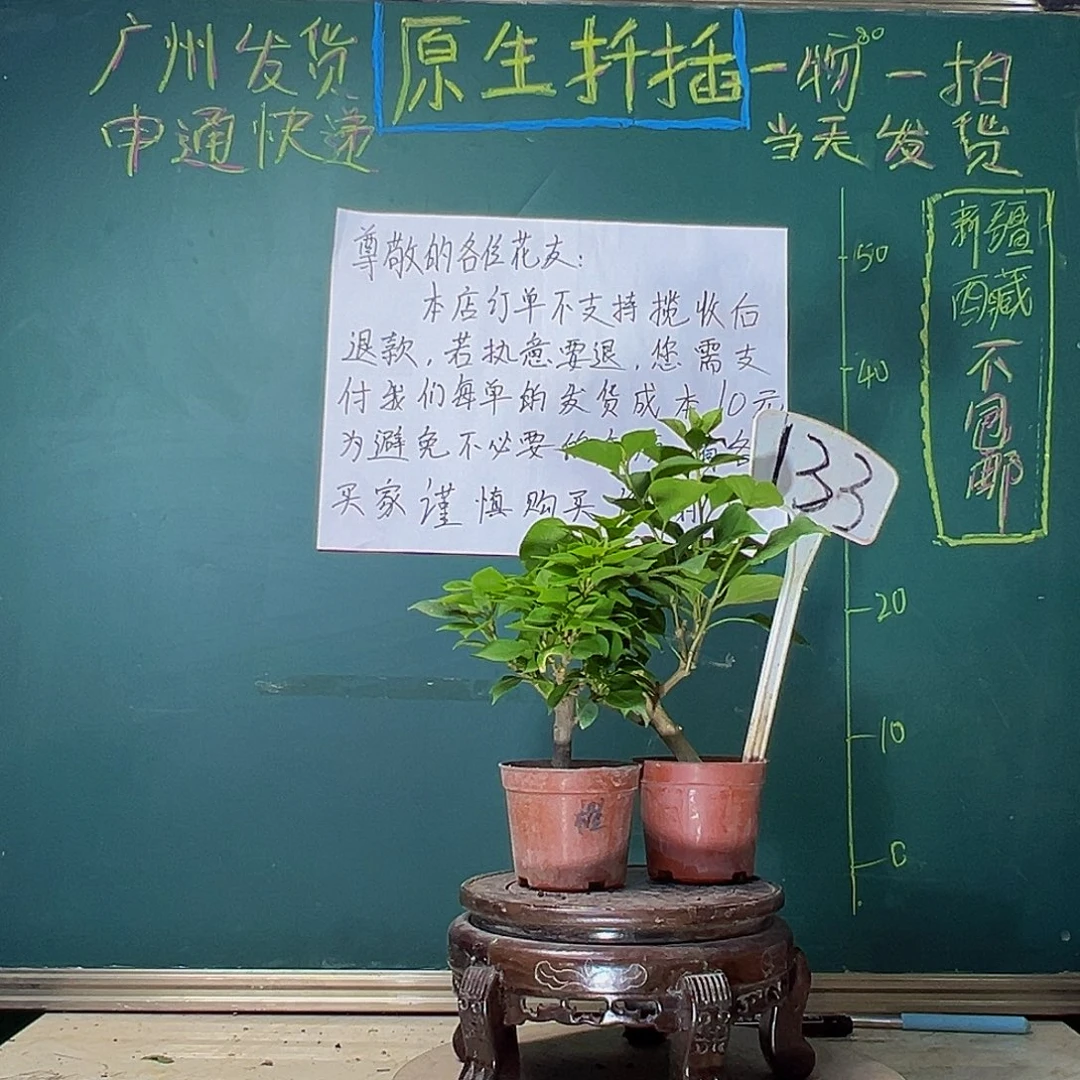 广州发货
申通快递
原生扦插
一物一拍
80
当天发货
尊敬的各位花友:
本店订单不支持揽收后
退款,若执意要退,您需支
付我们每单的发货成本10元
为避免不必要的
买家谨慎购买
133
50
40
20
10
0
新疆
西藏
不包邮
橙